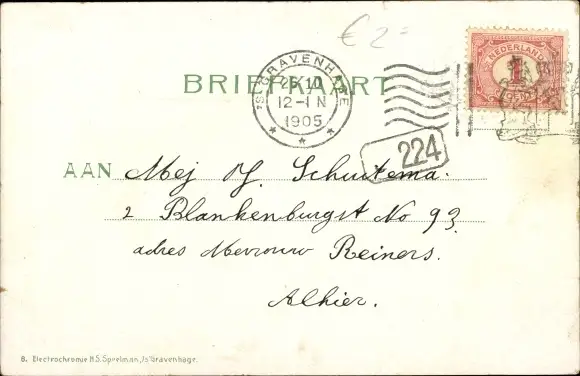 € 2=
NEDERLAND
1
BRIEFKAART
'S GRAVENHAGE
26.10
12-1 N
1905
224
AAN Mej M. Schuitema.
2 Blankenburgst No 93
adres Mevrouw Reiners.
Alhier.
8. Electrochromie H.S. Speelman, 's Gravenhage.